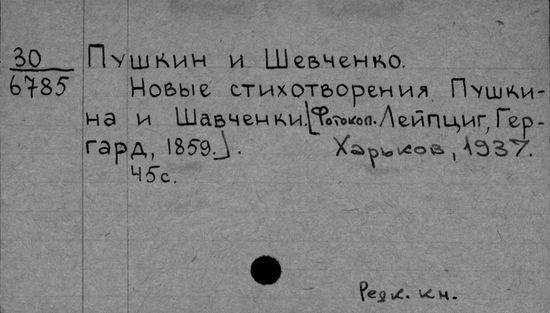 30 Пушкин и Шевченко.
6785 Новые стихотворения Пушки-
на и Шавченки.[Фотокоп. Лейпциг, Гер-
гард, 1859.]. Харьков, 1937.
45с.
Редк. кн.